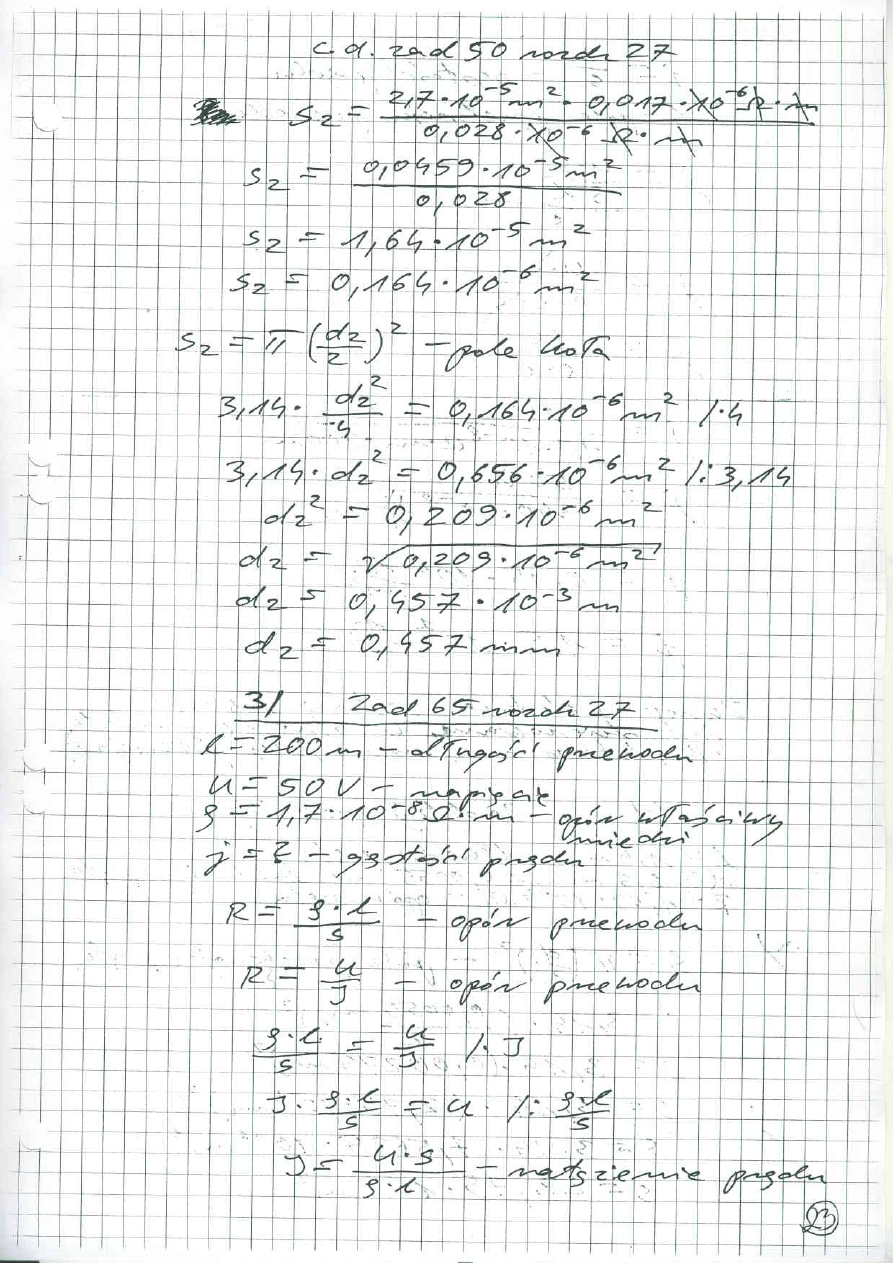 c.d. zad 50 rozdz 27
S₂ = (2,7·10⁻⁵ m² · 0,017·10⁻⁶ Ω·m)/(0,028·10⁻⁶ Ω·m)
S₂ = (0,0459·10⁻⁵ m²)/(0,028)
S₂ = 1,64·10⁻⁵ m²
S₂ = 0,164·10⁻⁶ m²
S₂ = π (d₂/2)² – pole koła
3,14 · d₂²/4 = 0,164·10⁻⁶ m² /·4
3,14 · d₂² = 0,656·10⁻⁶ m² /:3,14
d₂² = 0,209·10⁻⁶ m²
d₂ = √(0,209·10⁻⁶ m²)
d₂ = 0,457 · 10⁻³ m
d₂ = 0,457 mm
3/ Zad 65 rozdz 27
l = 200 m – długość przewodu
U = 50 V – napięcie
ρ = 1,7·10⁻⁸ Ω·m – opór właściwy
miedzi
j = ? – gęstość prądu
R = (ρ·l)/S – opór przewodu
R = U/J – opór przewodu
(ρ·l)/S = U/J /·J
J · (ρ·l)/S = U /: (ρ·l)/S
J = (U·S)/(ρ·l) – natężenie prądu
23